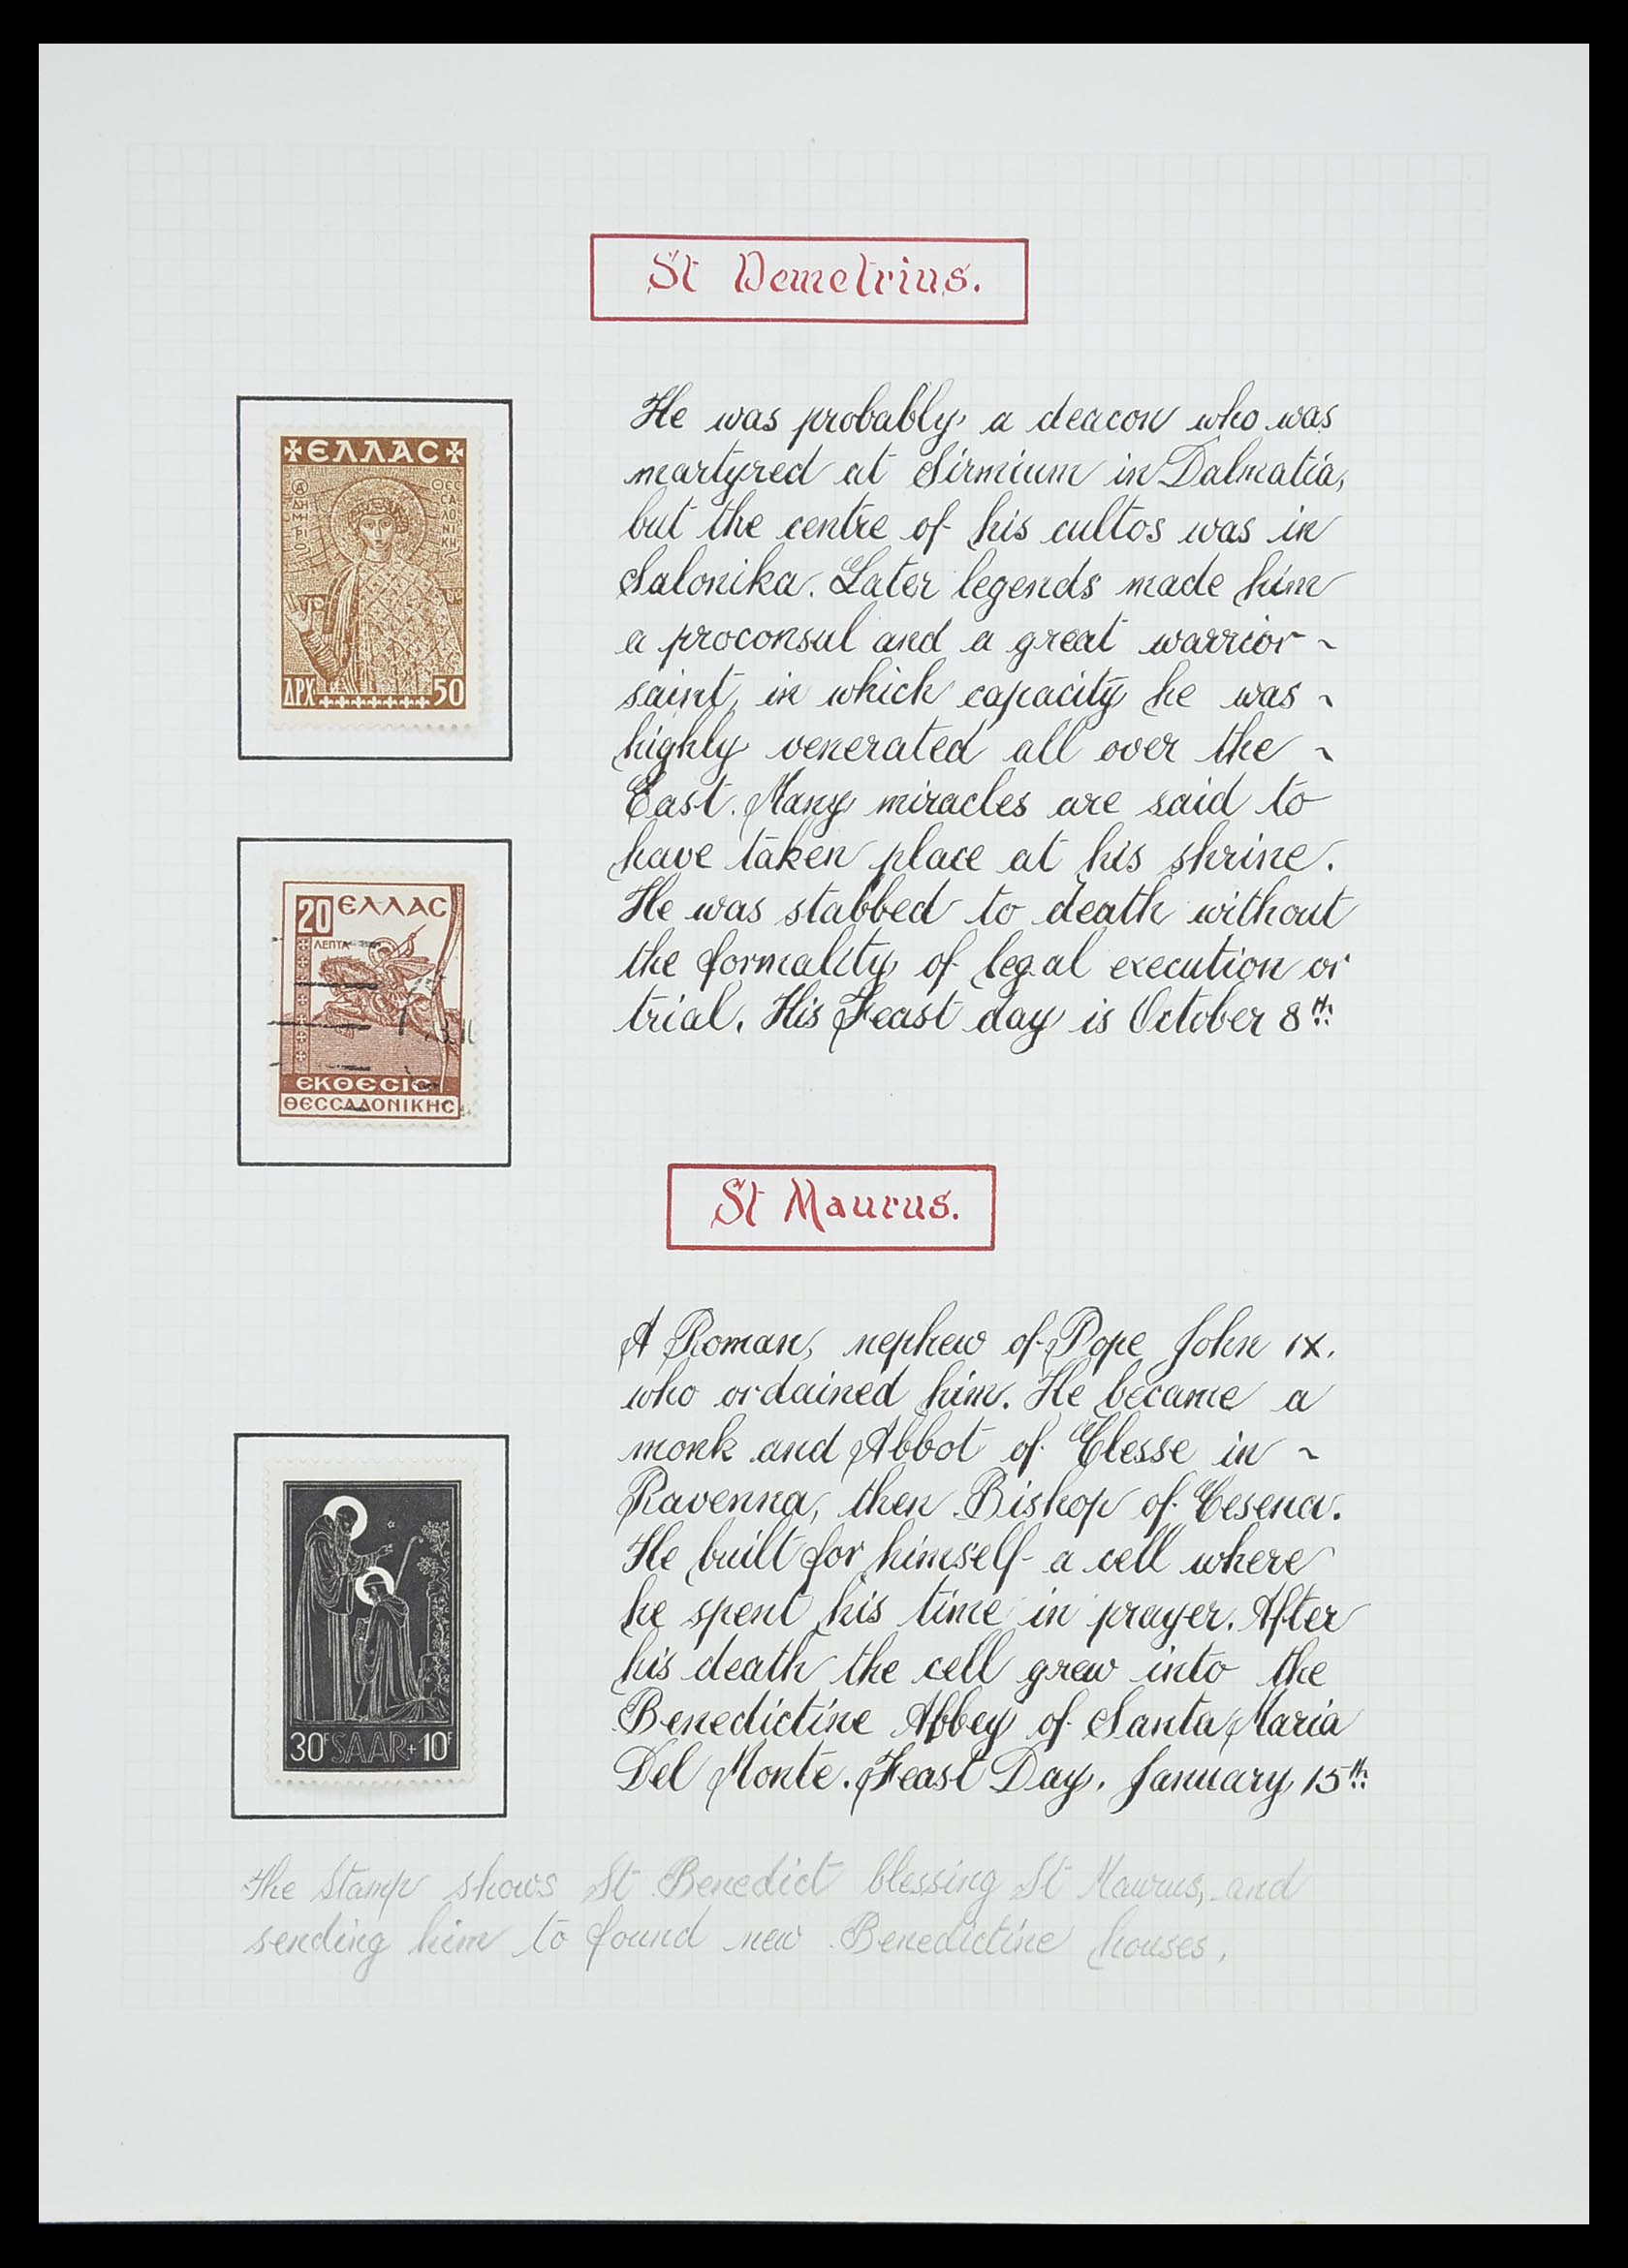 St Demetrius.
He was probably a deacon who was
martyred at Sirmium in Dalmatia,
but the centre of his cultos was in
Salonika. Later legends made him
a proconsul and a great warrior ~
saint, in which capacity he was ~
highly venerated all over the ~
East. Many miracles are said to
have taken place at his shrine.
He was stabbed to death without
the formality of legal execution or
trial. His Feast day is October 8th
ΕΛΛΑС
ΔΗΜΙΤΡΙΟС
ΘΕС
СΑ
ΛΟ
ΝΙ
ΚΗ
ΔΡΧ. 50
20 ΕΛΛΑС
ΛΕΠΤΑ
ΕΚΘΕСΙС
ΘΕССΑΛΟΝΙΚΗС
St Maurus.
A Roman, nephew of Pope John IX.
who ordained him. He became a
monk and Abbot of Clesse in ~
Ravenna, then Bishop of Cesena.
He built for himself a cell where
he spent his time in prayer. After
his death the cell grew into the
Benedictine Abbey of Santa Maria
Del Monte. Feast Day. January 15th
30F SAAR + 10F
The Stamp shows St Benedict blessing St Maurus, and
sending him to found new Benedictine houses.